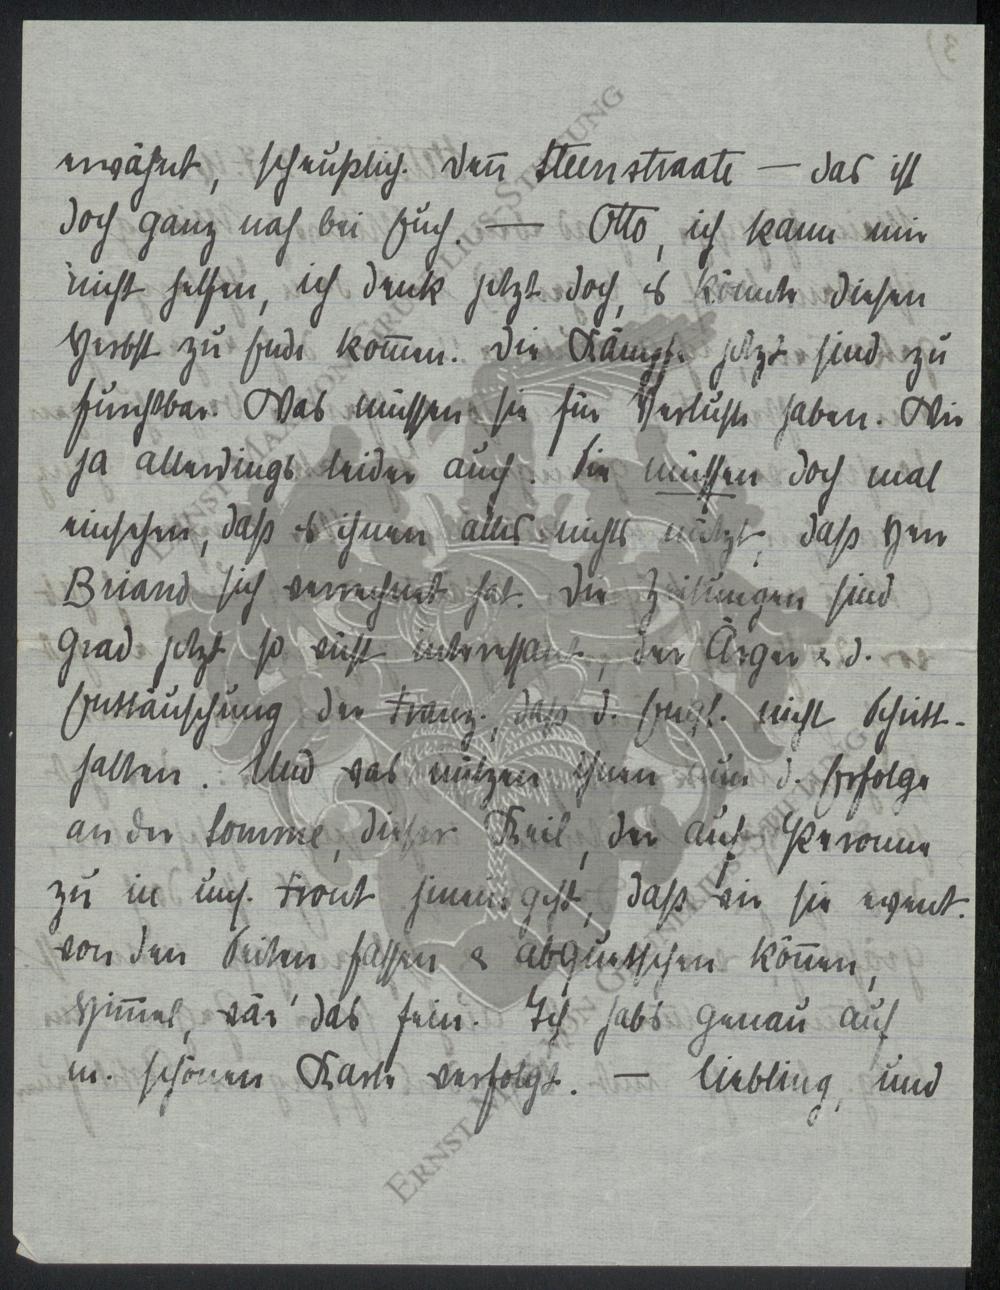 erwähnt, scheußlich. Denn Steenstraate — das ist
doch ganz nah bei Euch. — Otto, ich kann mir
nicht helfen, ich denk jetzt doch, es könnte diesen
Herbst zu Ende kom̅en. Die Kämpfe jetzt sind zu
furchtbar. Was müssen sie für Verluste haben. Wir
ja allerdings leider auch. Sie müssen doch mal
einsehen, daß es ihnen alles nichts nützt, daß Herr
Briand sich verrechnet hat. Die Zeitungen sind
grad jetzt so interessant, der Ärger & d.
Enttäuschung der Franz., daß d. Engl. nicht Schritt-
halten. Und was nützen ihnen nun d. Erfolge
an der Somme, dieser Keil, der auf Peronne
zu in uns. Front hinein geht, daß wir sie event.
von den Seiten fassen & abquetschen kön̅en,
Him̅el, wär' das fein. Ich hab's genau auf
m. schönen Karte verfolgt. — Liebling, und
3)
ERNST MARIMON GRUPILIUS STIFTUNG